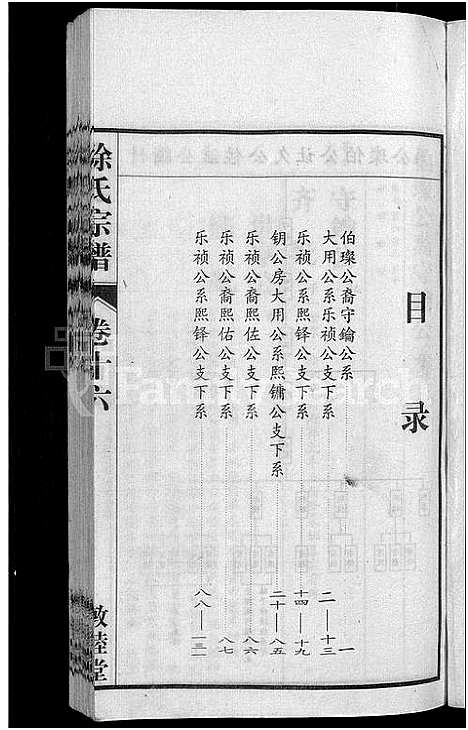 目录
伯璨公裔守鑰公系……一
大用公系乐祯公支下系……二——十三
乐祯公系熙铎公支下系……十四——十九
钥公房大用公系熙镛公支下系……二十——八五
乐祯公裔熙佐公支下系……八六
乐祯公裔熙佑公支下系……八七
乐祯公系熙铎公支下系……八八——一三一
徐氏宗谱
卷十六
敦睦堂